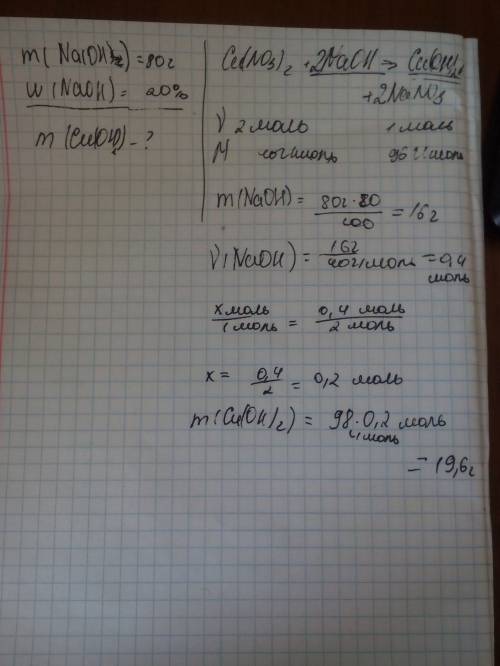 m(Na(OH)2) = 80г
w(NaOH) = 20%
m(Cu(OH)2) - ?
Cu(NO3)2 + 2NaOH => Cu(OH)2↓
+ 2NaNO3
ν 2 моль 1 моль
M г/моль 98 г/моль
m(NaOH) = 80г·20/100 = 16г
ν(NaOH) = 16г/40г/моль = 0,4 моль
x моль/1 моль = 0,4 моль/2 моль
x = 0,4/2 = 0,2 моль
m(Cu(OH)2) = 98г/моль·0,2 моль
= 19,6г